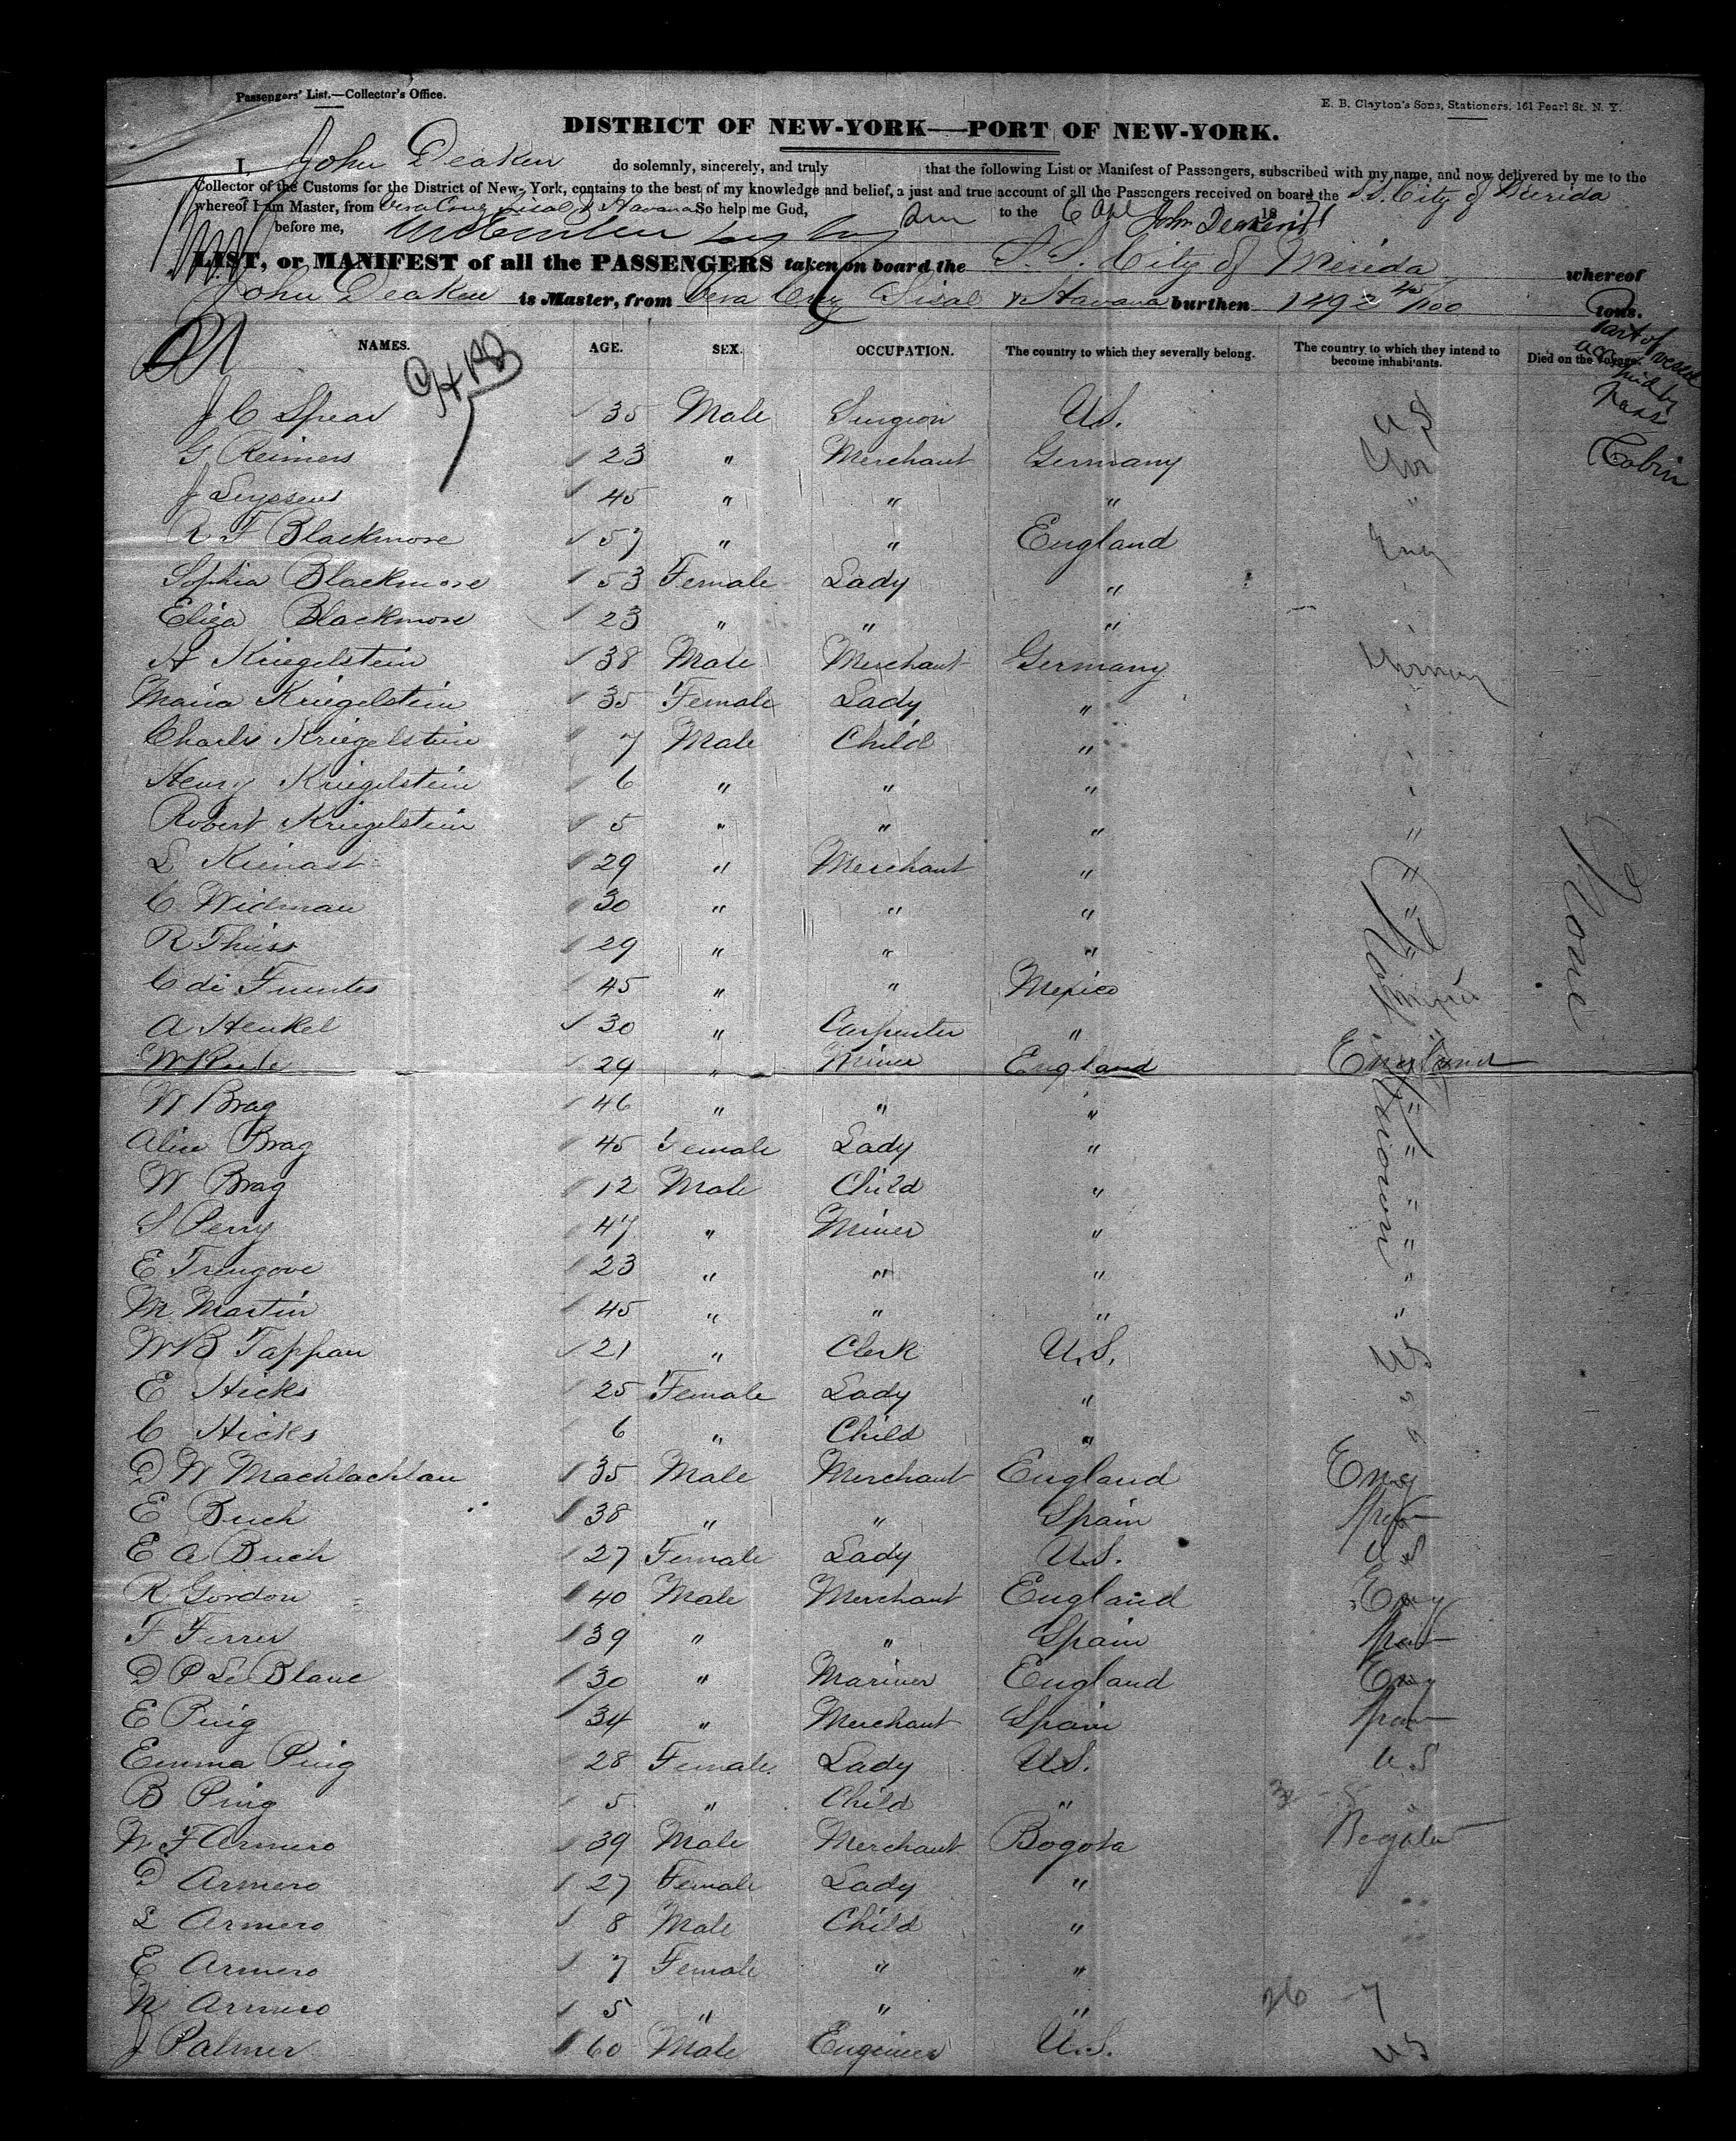 Passengers' List.—Collector's Office.
E. B. Clayton's Sons, Stationers, 161 Pearl St. N. Y.
DISTRICT OF NEW-YORK—PORT OF NEW-YORK.
I, John Deaken do solemnly, sincerely, and truly that the following List or Manifest of Passengers, subscribed with my name, and now delivered by me to the
Collector of the Customs for the District of New-York, contains to the best of my knowledge and belief, a just and true account of all the Passengers received on board the S.S. City of Merida
whereof I am Master, from Vera Cruz Sisal & Havana So help me God, to the 6 Apl 18 John Deaken
before me,
LIST, or MANIFEST of all the PASSENGERS taken on board the S.S. City of Merida whereof
John Deaken is Master, from Vera Cruz Sisal & Havana burthen 1492 45/100 tons.
NAMES. AGE. SEX. OCCUPATION. The country to which they severally belong. The country to which they intend to become inhabitants. Died on the Voyage. Part of vessel occupied by Pass
J C Spear 35 Male Surgeon U.S. U S
G Reimers 23 " Merchant Germany Ger Cabin
J Seyssens 45 " " " "
R F Blackmore 57 " " England Eng
Sophia Blackmore 53 Female Lady "
Eliza Blackmore 23 " " "
A Kriegelstein 38 Male Merchant Germany Germany
Maria Kriegelstein 35 Female Lady "
Charls Kriegelstein 7 Male Child "
Henry Kriegelstein 6 " " "
Robert Kriegelstein 5 " " " "
L Kienast 29 " Merchant " "
C Widman 30 " " " "
R Thuss 29 " " "
C de Fuentes 45 " " Mexico Mexico
A Henkel 30 " Carpenter " "
W 29 " Miner England England
W Brag 46 " " " "
Alice Brag 45 Female Lady " "
W Brag 12 Male Child " "
S Perry 47 " Miner " "
E Trengove 23 " " " "
M Martin 45 " " " "
W B Tappan 21 " Clerk U.S. U S
E Hicks 25 Female Lady " "
C Hicks 6 " Child " "
D W Machlachlan 35 Male Merchant England Eng
E Buch 38 " " Spain Spain
E A Buch 27 Female Lady U.S. U S
R Gordon 40 Male Merchant England Eng
F Ferrer 39 " " Spain Spain
D P Le Blanc 30 " Mariner England Eng
E Puig 34 " Merchant Spain Spain
Emma Puig 28 Female Lady U.S. U S
B Puig 5 " Child "
N F Armero 39 Male Merchant Bogota Bogota
D Armero 27 Female Lady " "
L Armero 8 Male Child " "
E Armero 7 Female " "
N Armero 5 " " " 26 - 7
J Palmer 60 Male Engineer U.S. U S
None
Unknown